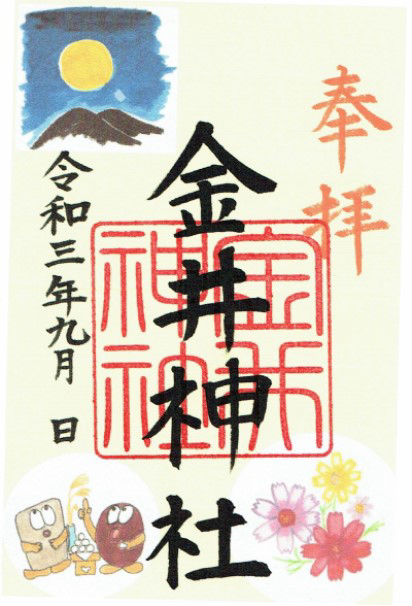 奉拝
金井神社
令和三年九月 日